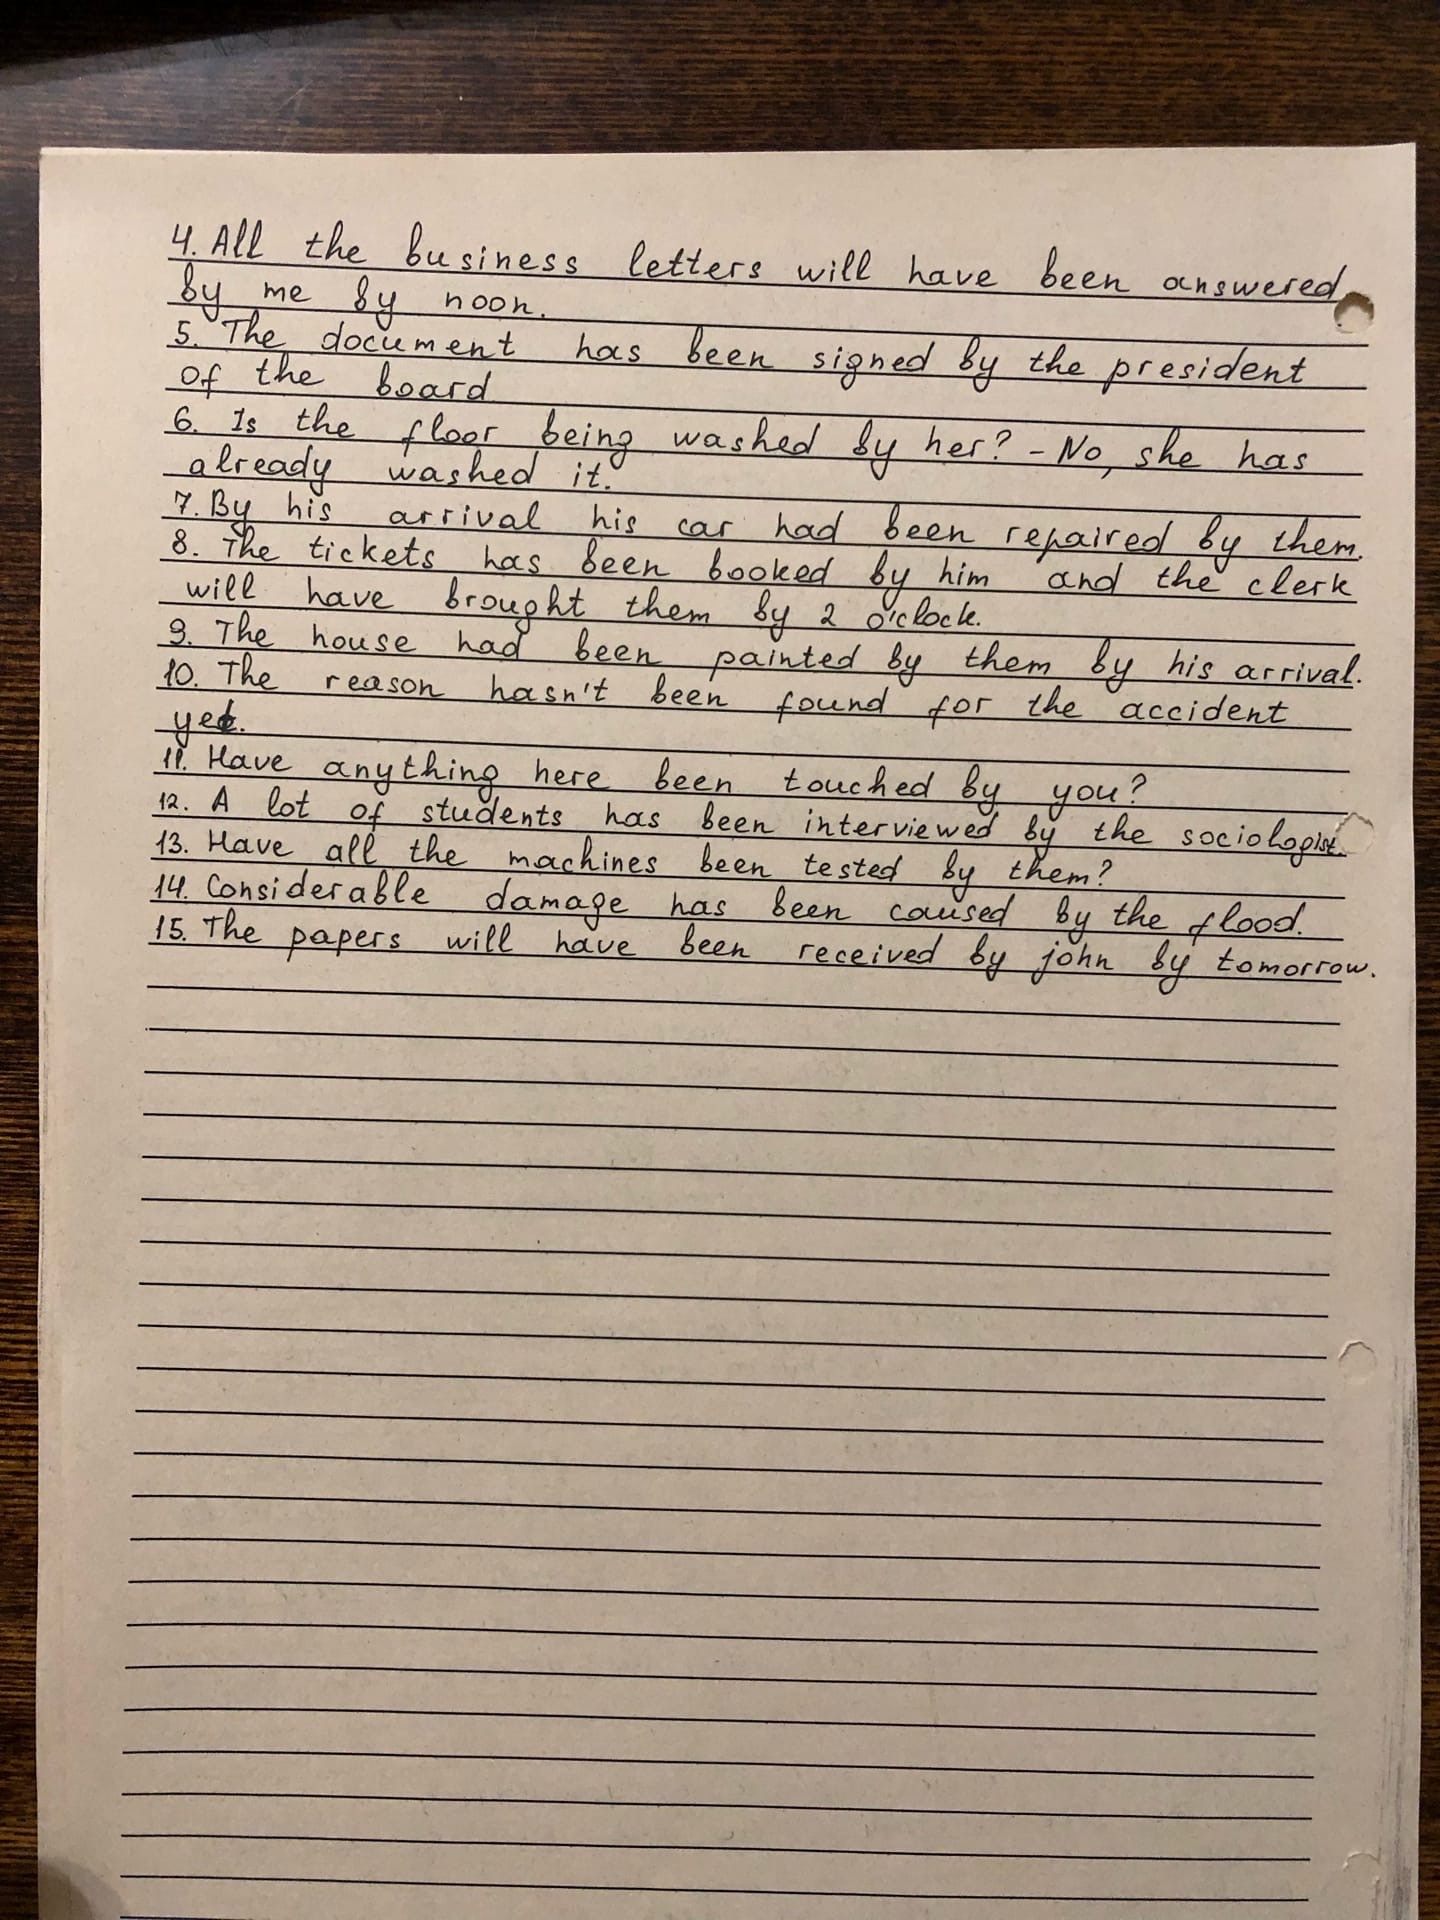 4. All the business letters will have been answered
by me by noon.
5. The document has been signed by the president
of the board
6. Is the floor being washed by her? - No, she has
already washed it.
7. By his arrival his car had been repaired by them.
8. The tickets has been booked by him and the clerk
will have brought them by 2 o'clock.
9. The house had been painted by them by his arrival.
10. The reason hasn't been found for the accident
yet.
11. Have anything here been touched by you?
12. A lot of students has been interviewed by the sociologist.
13. Have all the machines been tested by them?
14. Considerable damage has been caused by the flood.
15. The papers will have been received by john by tomorrow.